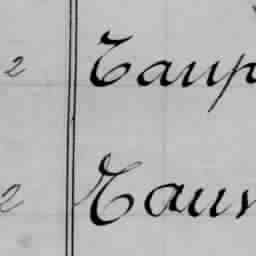 2 Taup
2 Tauv